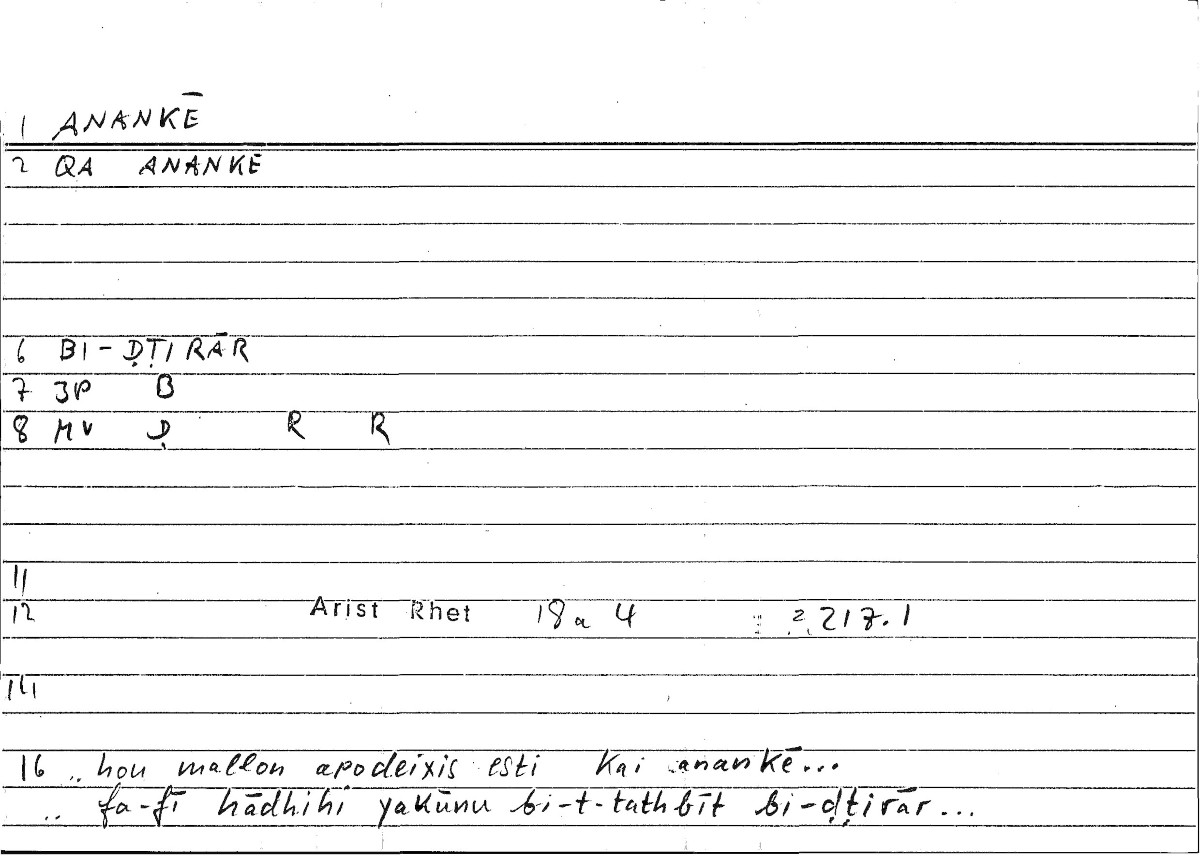 1 ANANKĒ
2 QA ANANKĒ
6 BI-ḌṬIRĀR
7 3P B
8 MV Ḍ R R
11
12 Arist Rhet 18a 4 217.1
14
16 .. hou mallon apodeixis esti kai anankē...
.. fa-fī hādhihi yakūnu bi-t-tathbīt bi-ḍṭirār...